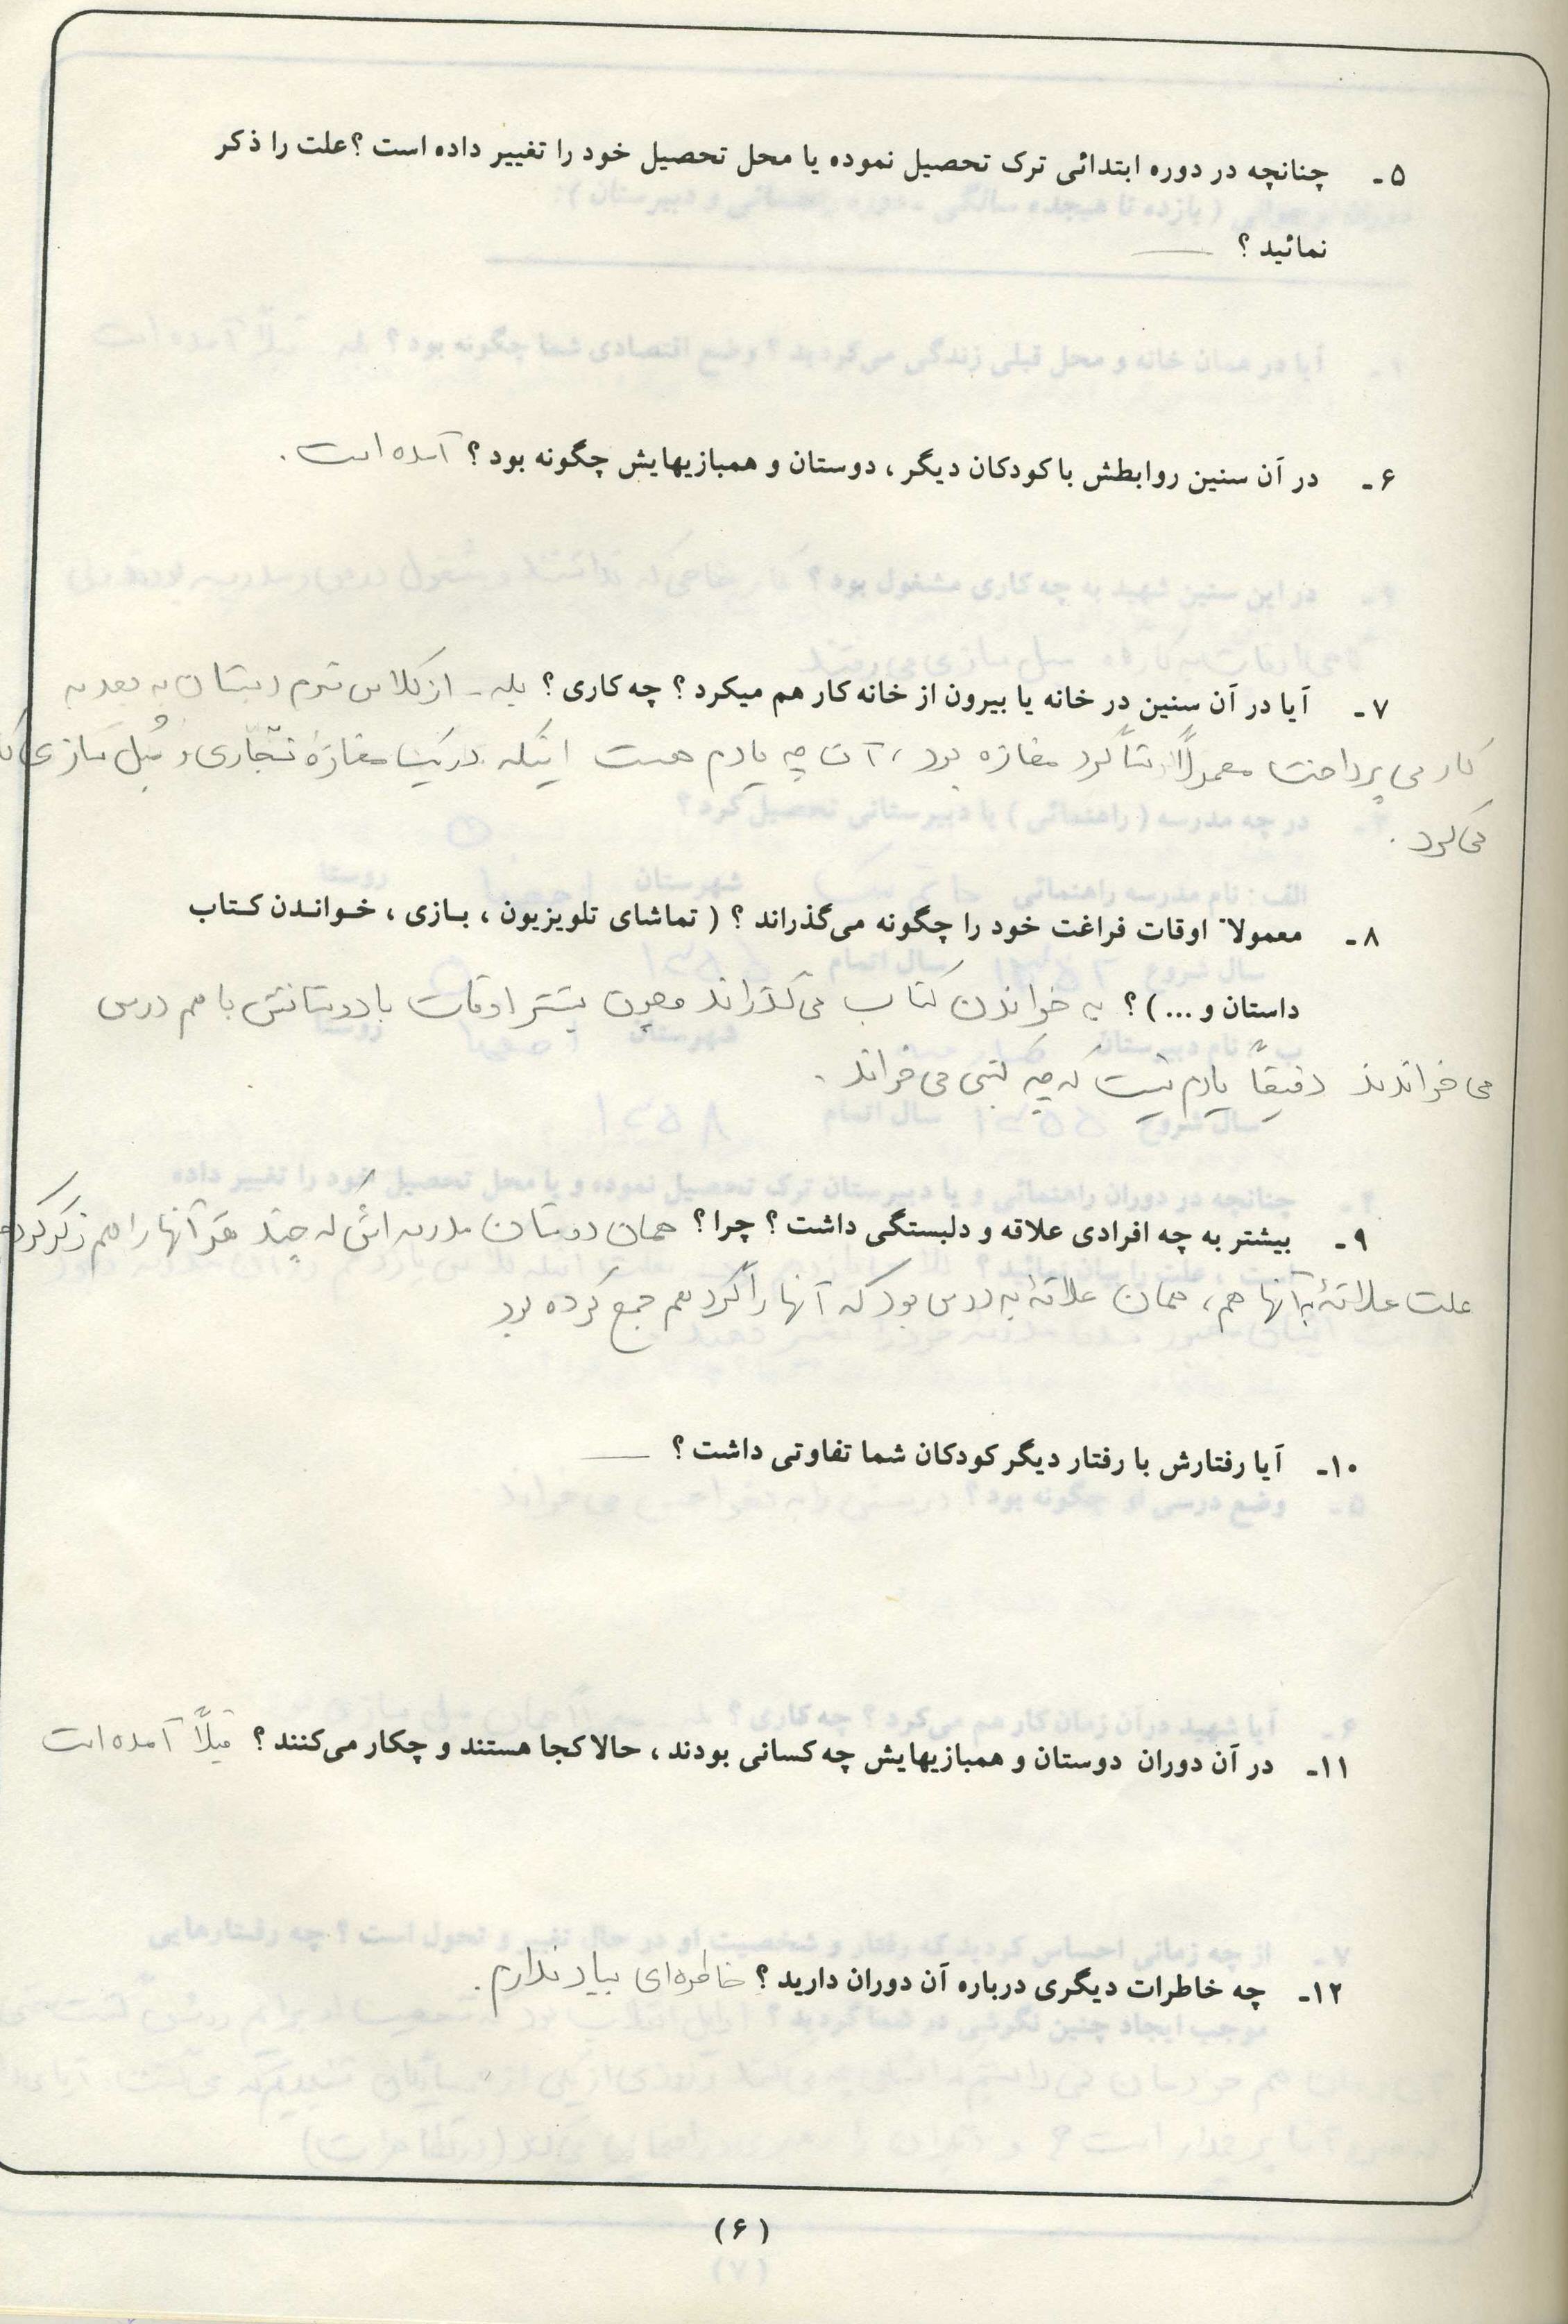 ۵ - چنانچه در دوره ابتدائی ترک تحصیل نموده یا محل تحصیل خود را تغییر داده است ؟ علت را ذکر
نمائید ؟ —
۶ - در آن سنین روابطش با کودکان دیگر ، دوستان و همبازیهایش چگونه بود ؟ آمده است .
۷ - آیا در آن سنین در خانه یا بیرون از خانه کار هم میکرد ؟ چه کاری ؟ بله - از کلاس سوم دبستان به بعد به
کار می پرداخت معمولاً شاگرد مغازه بود ، آن چه یادم هست اینکه در یک مغازهٔ نجّاری و مُبل سازی کار
می کرد .
۸ - معمولاً اوقات فراغت خود را چگونه می‌گذراند ؟ ( تماشای تلویزیون ، بازی ، خواندن کتاب
داستان و ... ) ؟ به خواندن کتاب می گذراند و چون بیشتر اوقات با دوستانش با هم درس
می خواندند دقیقاً یادم نیست که چه کتبی می خواند .
۹ - بیشتر به چه افرادی علاقه و دلبستگی داشت ؟ چرا ؟ همان دوستان مدرسه اش که چند نفر آنها را هم ذکر کردم
علت علاقهٔ به آنها هم ، همان علاقهٔ به درس بود که آنها را گرد هم جمع کرده بود
۱۰ - آیا رفتارش با رفتار دیگر کودکان شما تفاوتی داشت ؟ —
۱۱ - در آن دوران دوستان و همبازیهایش چه کسانی بودند ، حالا کجا هستند و چکار می‌کنند ؟ قبلاً آمده است
۱۲ - چه خاطرات دیگری درباره آن دوران دارید ؟ خاطره‌ای بیاد ندارم .
( ۶ )